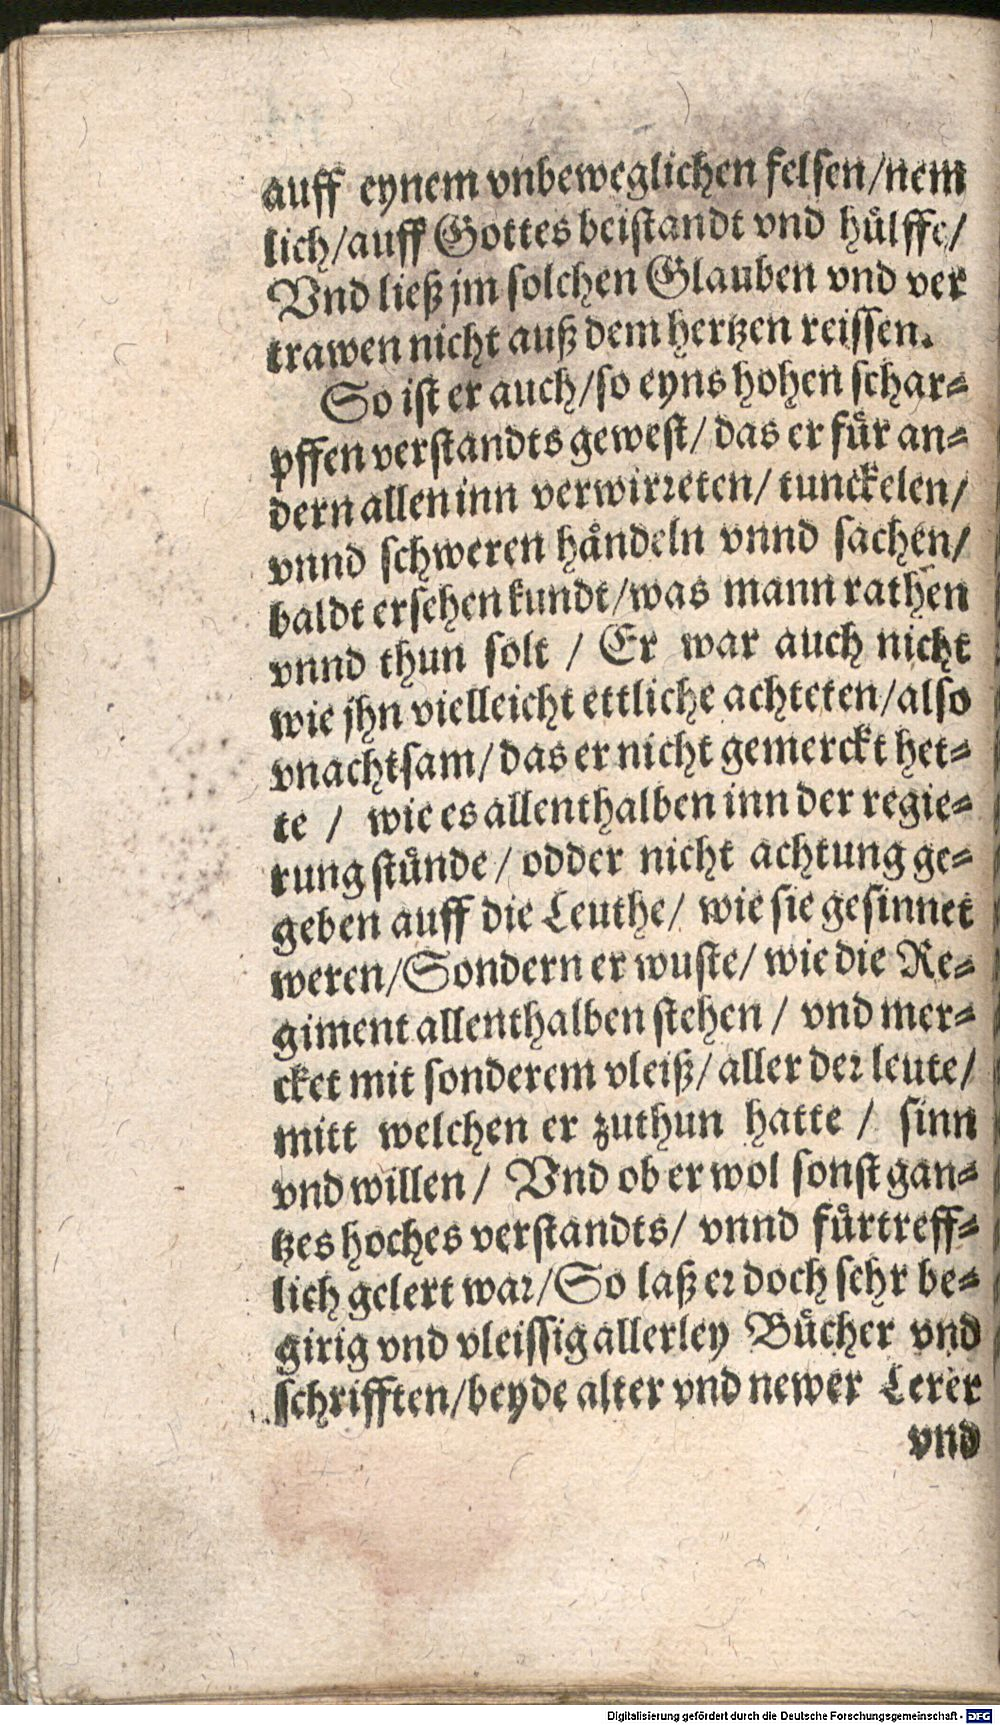 auff eynem vnbeweglichen felsen/nem
lich/auff Gottes beistandt vnd huͤlffe/
Vnd ließ jm solchen Glauben vnd ver
trawen nicht auß dem hertzen reissen.
So ist er auch/so eyns hohen schar⸗
pffen verstandts gewest/ das er fuͤr an⸗
dern allen inn verwirꝛeten/ tunckelen/
vnnd schweren haͤndeln vnnd sachen/
baldt ersehen kundt/was mann rathen
vnnd thun solt / Er war auch nicht
wie jhn vielleicht ettliche achteten/also
vnachtsam/ das er nicht gemerckt het⸗
te / wie es allenthalben inn der regie⸗
rung stuͤnde/ odder nicht achtung ge⸗
geben auff die Leuthe/ wie sie gesinnet
weren/Sondern er wuste/ wie die Re⸗
giment allenthalben stehen / vnd mer⸗
cket mit sonderem vleiß/ aller deꝛ leute/
mitt welchen er zuthun hatte / sinn
vnd willen/ Vnd ob er wol sonst gan⸗
tzes hoches verstandts/ vnnd fuͤrtreff⸗
lich gelert waꝛ/So laß eꝛ doch sehr be⸗
girig vnd vleissig allerley Buͤcher vnd
schrifften/beyde alter vnd newer Lerer
vnd
Digitalisierung gefördert durch die Deutsche Forschungsgemeinschaft - DFG